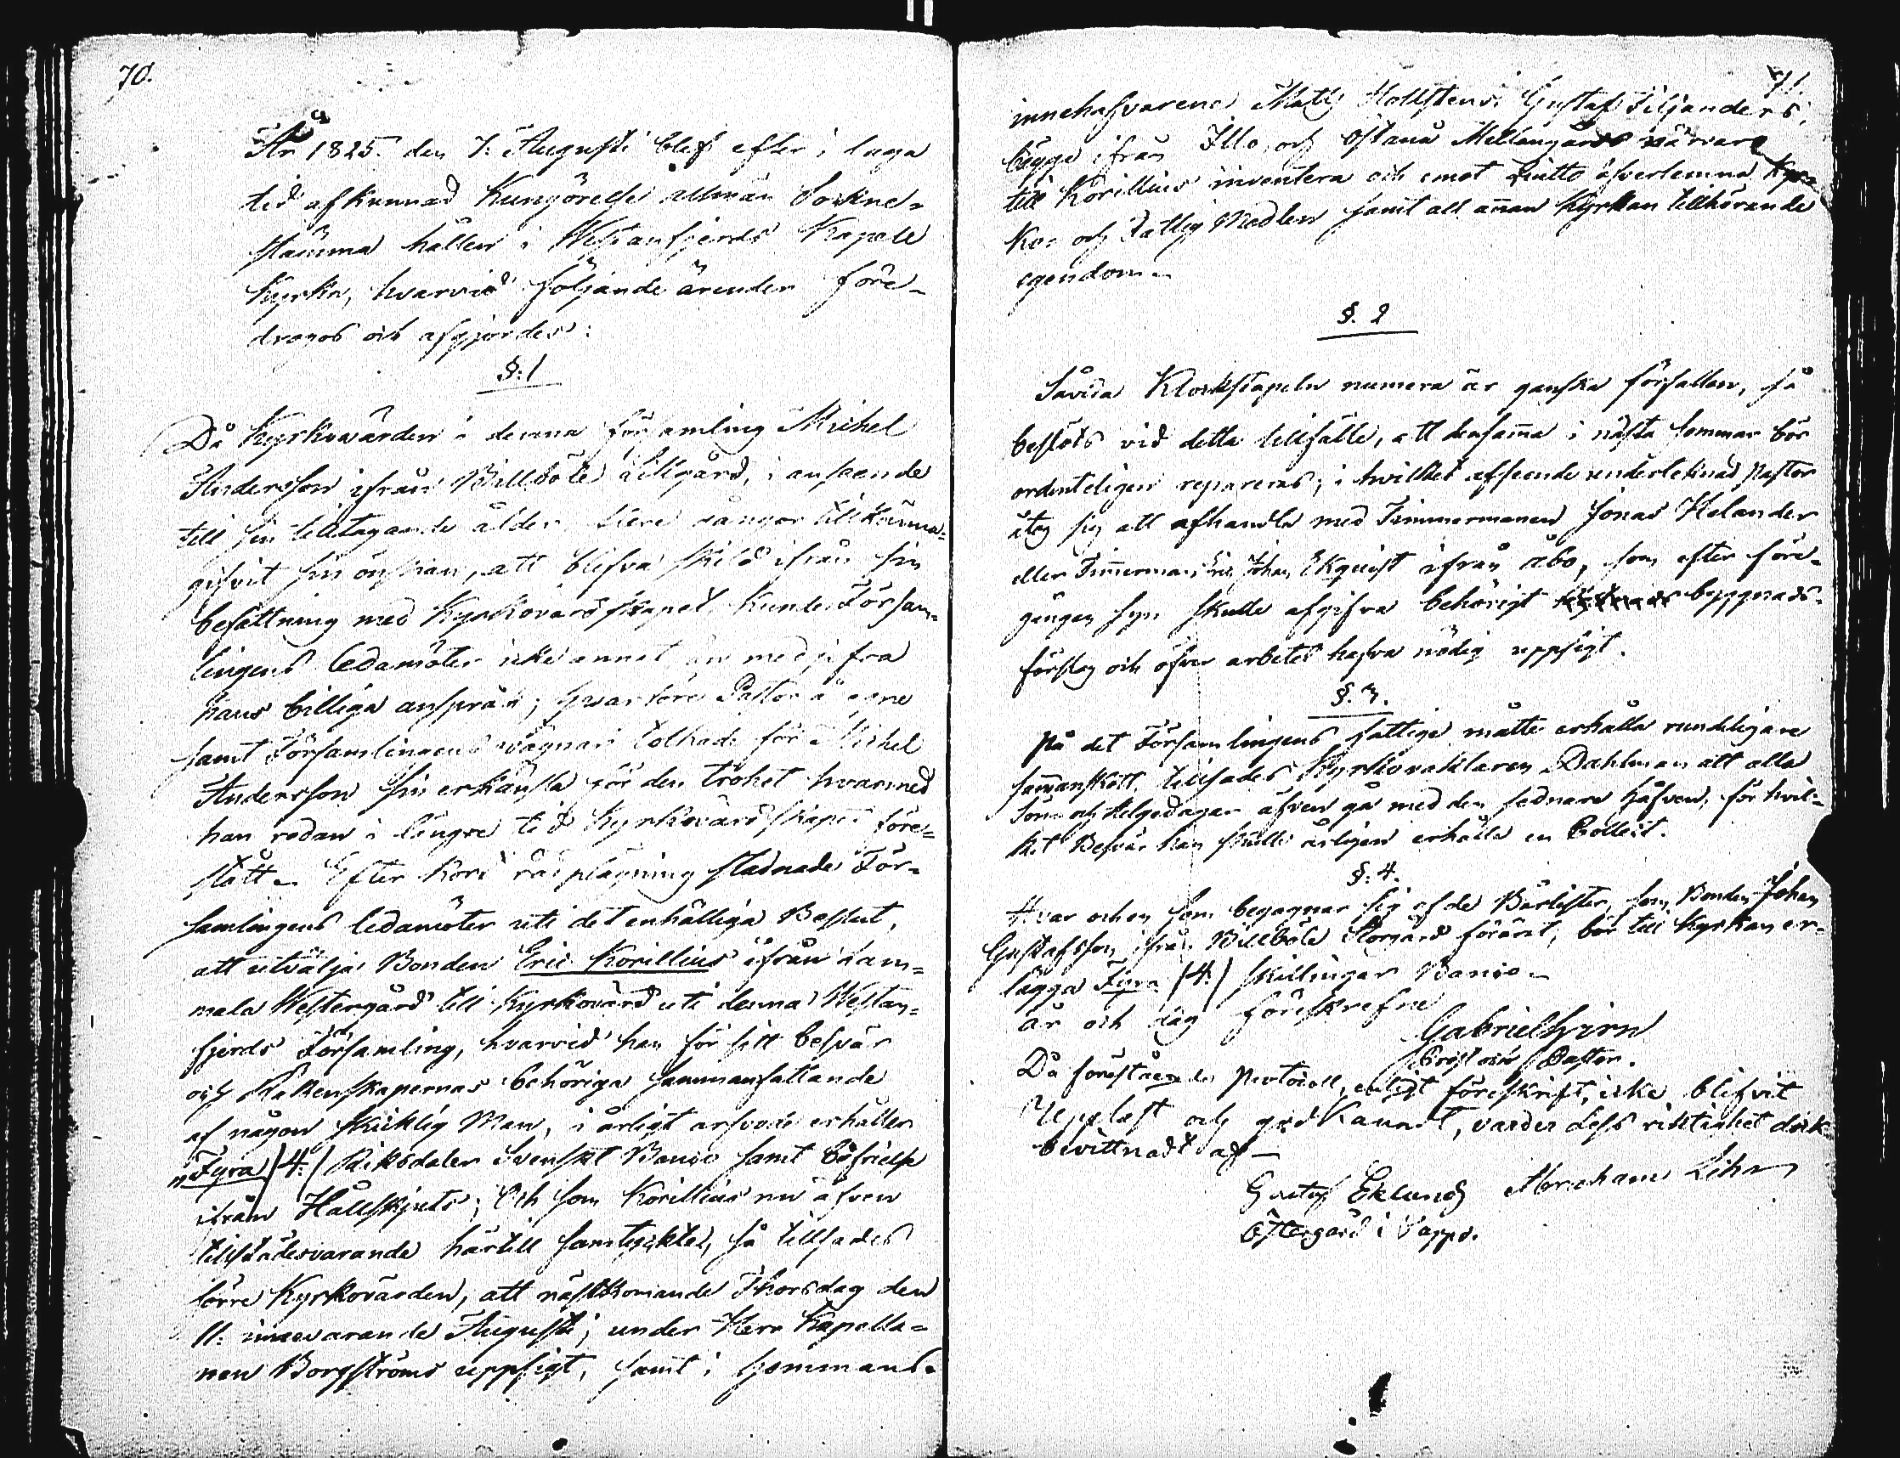 70.
År 1825. den 7. Augusti blef efter i laga
tid afkunnad Kungörelse allmän Sockne-
stämma hållen i Westanfjerds Kapell
Kyrka, hvarvid följande ärender före-
drogos och afgjordes:
§. 1
Då Kyrkovärden i denna församling Michel
Andersson ifrån Billböle Lillgård, i anseende
till sin tilltagande ålder flere gångor tillkänna-
gifvit sin önskan, att blifva skild ifrån sin
befattning med Kyrkovärdskapet, kunde Försam-
lingens ledamöter icke annat än medgifva
hans billiga anspråk; hvarföre Pastor å egne
samt Församlingens vägnar tolkade för Michel
Andersson sin erkänsla för den trohet hvarmed
han redan i längre tid Kyrkovärdskapet före-
stått. Efter kort rådplägning stadnade För-
samlingens ledamöter uti det enhälliga Beslut,
att utvälja Bonden Eric Korillius ifrån Lam-
mala Westergård till Kyrkovärd uti denna Westan-
fjerds Församling, hvarvid han för sitt besvär
och Räkenskapernas behöriga sammanfattande
af någon skicklig Man, i årligt arfvode erhåller
Fyra /4:/ Riksdaler Svenskt Banco samt befrielse
ifrån Hållskjuts; Och som Korillius nu äfven
tillstädesvarande härtill samtyckte, så tillsades
förre Kyrkovärden, att nästkomande Thorsdag den
11. innevarande Augusti, under Herr Kapella-
nen Borgströms uppsigt, samt i Sexmannens
71.
innehafvarene Matts Hollstens, Gustaf Siljanders,
bägge ifrån Illo, och Östanå Mellangårds närvaro
till Korillius inventera och emot Quitto öfverlemna Kyr-
ko- och Fattig Medlen samt all annan Kyrkan tillhörande
egendom.
§. 2
Såvida Klockstapeln numera är ganska förfallen, så
beslöts vid detta tillfälle, att densamma i nästa sommar bör
ordenteligen repareras; i hvilket afseende undertecknad Pastor
åtog sig att afhandla med Timmermannen Jonas Helander
eller Timmerman Johan Ekquist ifrån Åbo, som efter före-
gången syn skulle afgifva behörigt byggnads-
förslag och öfver arbetet hafva nödig uppsigt.
§. 3.
På det Församlingens fattige måtte erhålla rundeligare
sammanskott, tillsades Kyrkovaktaren Dahlman att alla
Sön- och Helgedagar äfven gå med den sednare Håfven, för hvil-
ket Besvär han skulle årligen erhålla en Collect.
§. 4.
Hvar och en som begagnar sig af de Bårlister, som Bonden Johan
Gustafsson ifrån Billböle Storgård förärt, bör till Kyrkan er-
lägga Fyra /4:/ skillingar Banco.
år och dag föreskrefne
Gabriel Hirn
Prost och Pastor.
Då förestående Protocoll, enligt föreskrift, icke blifvit
Uppläst och godkannt, varder dess riktighet dock
bevittnadt af
Gustaf Eklund Abraham Lihr
Östergård i Sappo.